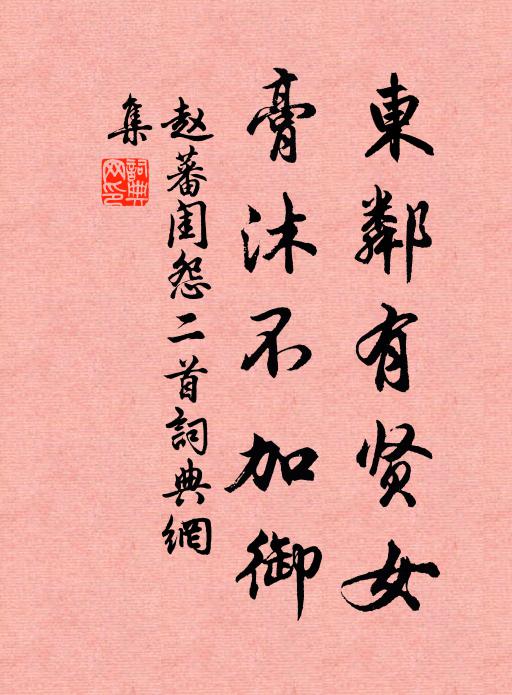 東鄰有贤女
膏沐不加御
赵蕃闺怨二首詞典網
集
詞典网印